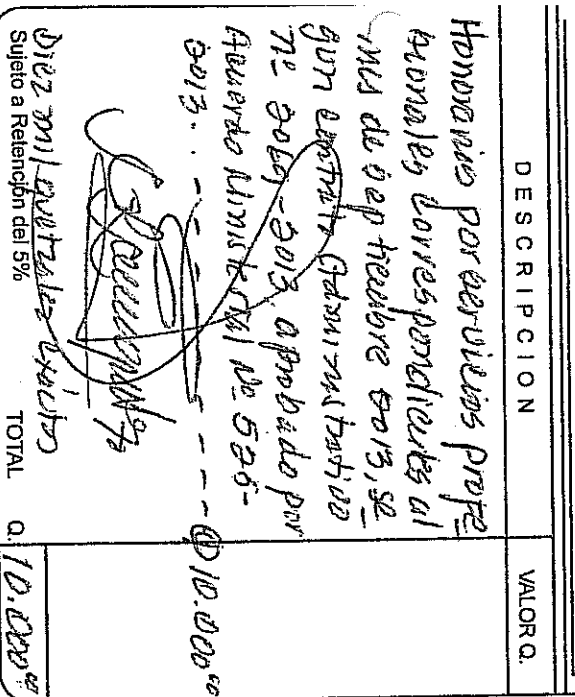 DESCRIPCION VALOR Q.
Honorarios por servicios profe
sionales correspondientes al
mes de septiembre 2013, se
gún contrato Administrativo
Nº -2013 aprobado por
Acuerdo Ministerial Nº 525-
2013. - - - - - - - Q 10.000.00
Diez mil quetzales exactos
Sujeto a Retención del 5% TOTAL Q. 10.000.00